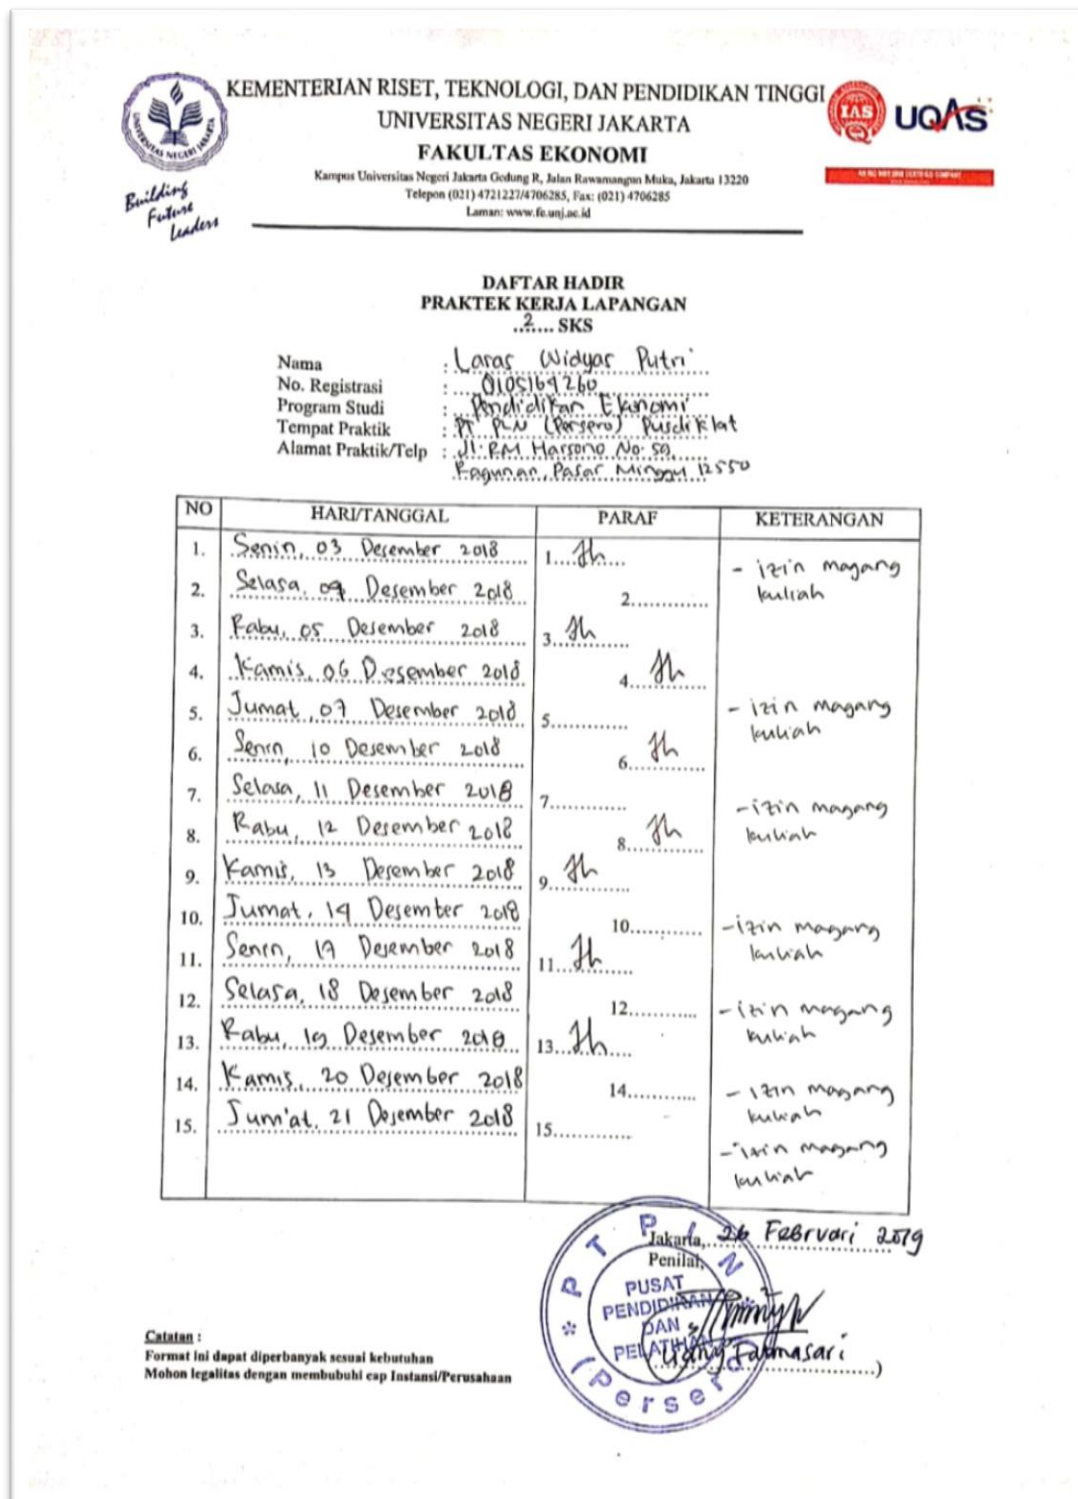 KEMENTERIAN RISET, TEKNOLOGI, DAN PENDIDIKAN TINGGI
UNIVERSITAS NEGERI JAKARTA
FAKULTAS EKONOMI
Kampus Universitas Negeri Jakarta Gedung R, Jalan Rawamangun Muka, Jakarta 13220
Telepon (021) 4721227/4706285, Fax: (021) 4706285
Laman: www.fe.unj.ac.id
UNIVERSITAS NEGERI JAKARTA
Building
Future
Leaders
IAS
UQAS
DAFTAR HADIR
PRAKTEK KERJA LAPANGAN
..2.... SKS
Nama : Laras Widyas Putri
No. Registrasi :
Program Studi : Pendidikan Ekonomi
Tempat Praktik : PT PLN (Persero) Pusdiklat
Alamat Praktik/Telp : Jl. RM Harsono No. 59,
Ragunan, Pasar Minggu 12550
NO HARI/TANGGAL PARAF KETERANGAN
1. Senin, 03 Desember 2018 1.
- izin magang
2. Selasa, 04 Desember 2018 2. kuliah
3. Rabu, 05 Desember 2018 3.
4. Kamis, 06 Desember 2018 4.
5. Jumat, 07 Desember 2018 5. - izin magang
kuliah
6. Senin, 10 Desember 2018 6.
7. Selasa, 11 Desember 2018 7. - izin magang
8. Rabu, 12 Desember 2018 8. kuliah
9. Kamis, 13 Desember 2018 9.
10. Jumat, 14 Desember 2018 10. - izin magang
11. Senin, 17 Desember 2018 11. kuliah
12. Selasa, 18 Desember 2018 12. - izin magang
13. Rabu, 19 Desember 2018 13. kuliah
14. Kamis, 20 Desember 2018 14. - izin magang
kuliah
15. Jum'at, 21 Desember 2018 15.
- izin magang
kuliah
Jakarta, 26 Februari 2019
Penilai,
PT PLN
PUSAT
PENDIDIKAN
DAN
PELATIHAN
(Persero)
Catatan :
Format ini dapat diperbanyak sesuai kebutuhan
Mohon legalitas dengan membubuhi cap Instansi/Perusahaan